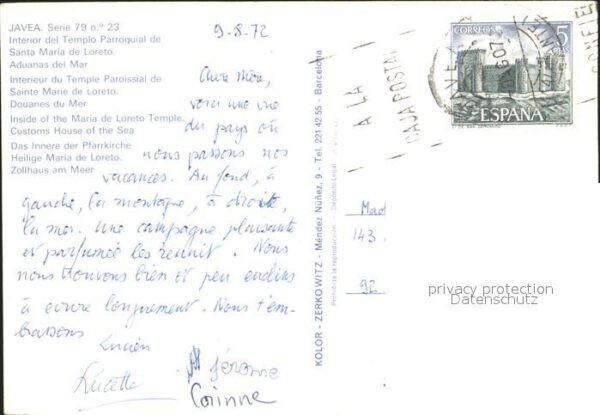 JAVEA. Serie 79 n.º 23
Interior del Templo Parroquial de
Santa Maria de Loreto.
Aduanas del Mar
Interieur du Temple Paroissial de
Sainte Marie de Loreto.
Douanes du Mer
Inside of the Maria de Loreto Temple.
Customs House of the Sea
Das Innere der Pfarrkirche
Heilige Maria de Loreto.
Zollhaus am Meer
9-8-72
Chère Mère,
voici une vue
du pays où
nous passons nos
vacances. Au fond, à
gauche, la montagne, à droite,
la mer. Une campagne plaisante
et parfumée les réunit. Nous
nous trouvons bien et peu enclins
à écrire longuement. Nous t'em-
brassons
Lucien
Lucette
Jérôme
Corinne
KOLOR - ZERKOWITZ - Méndez Núñez, 9 - Tel. 221 42 55 - Barcelona
Prohibida la reproducción Depósito Legal
A LA
CAJA POSTAL
CORREOS
5
ESPAÑA
Mad
143
92
privacy protection
Datenschutz